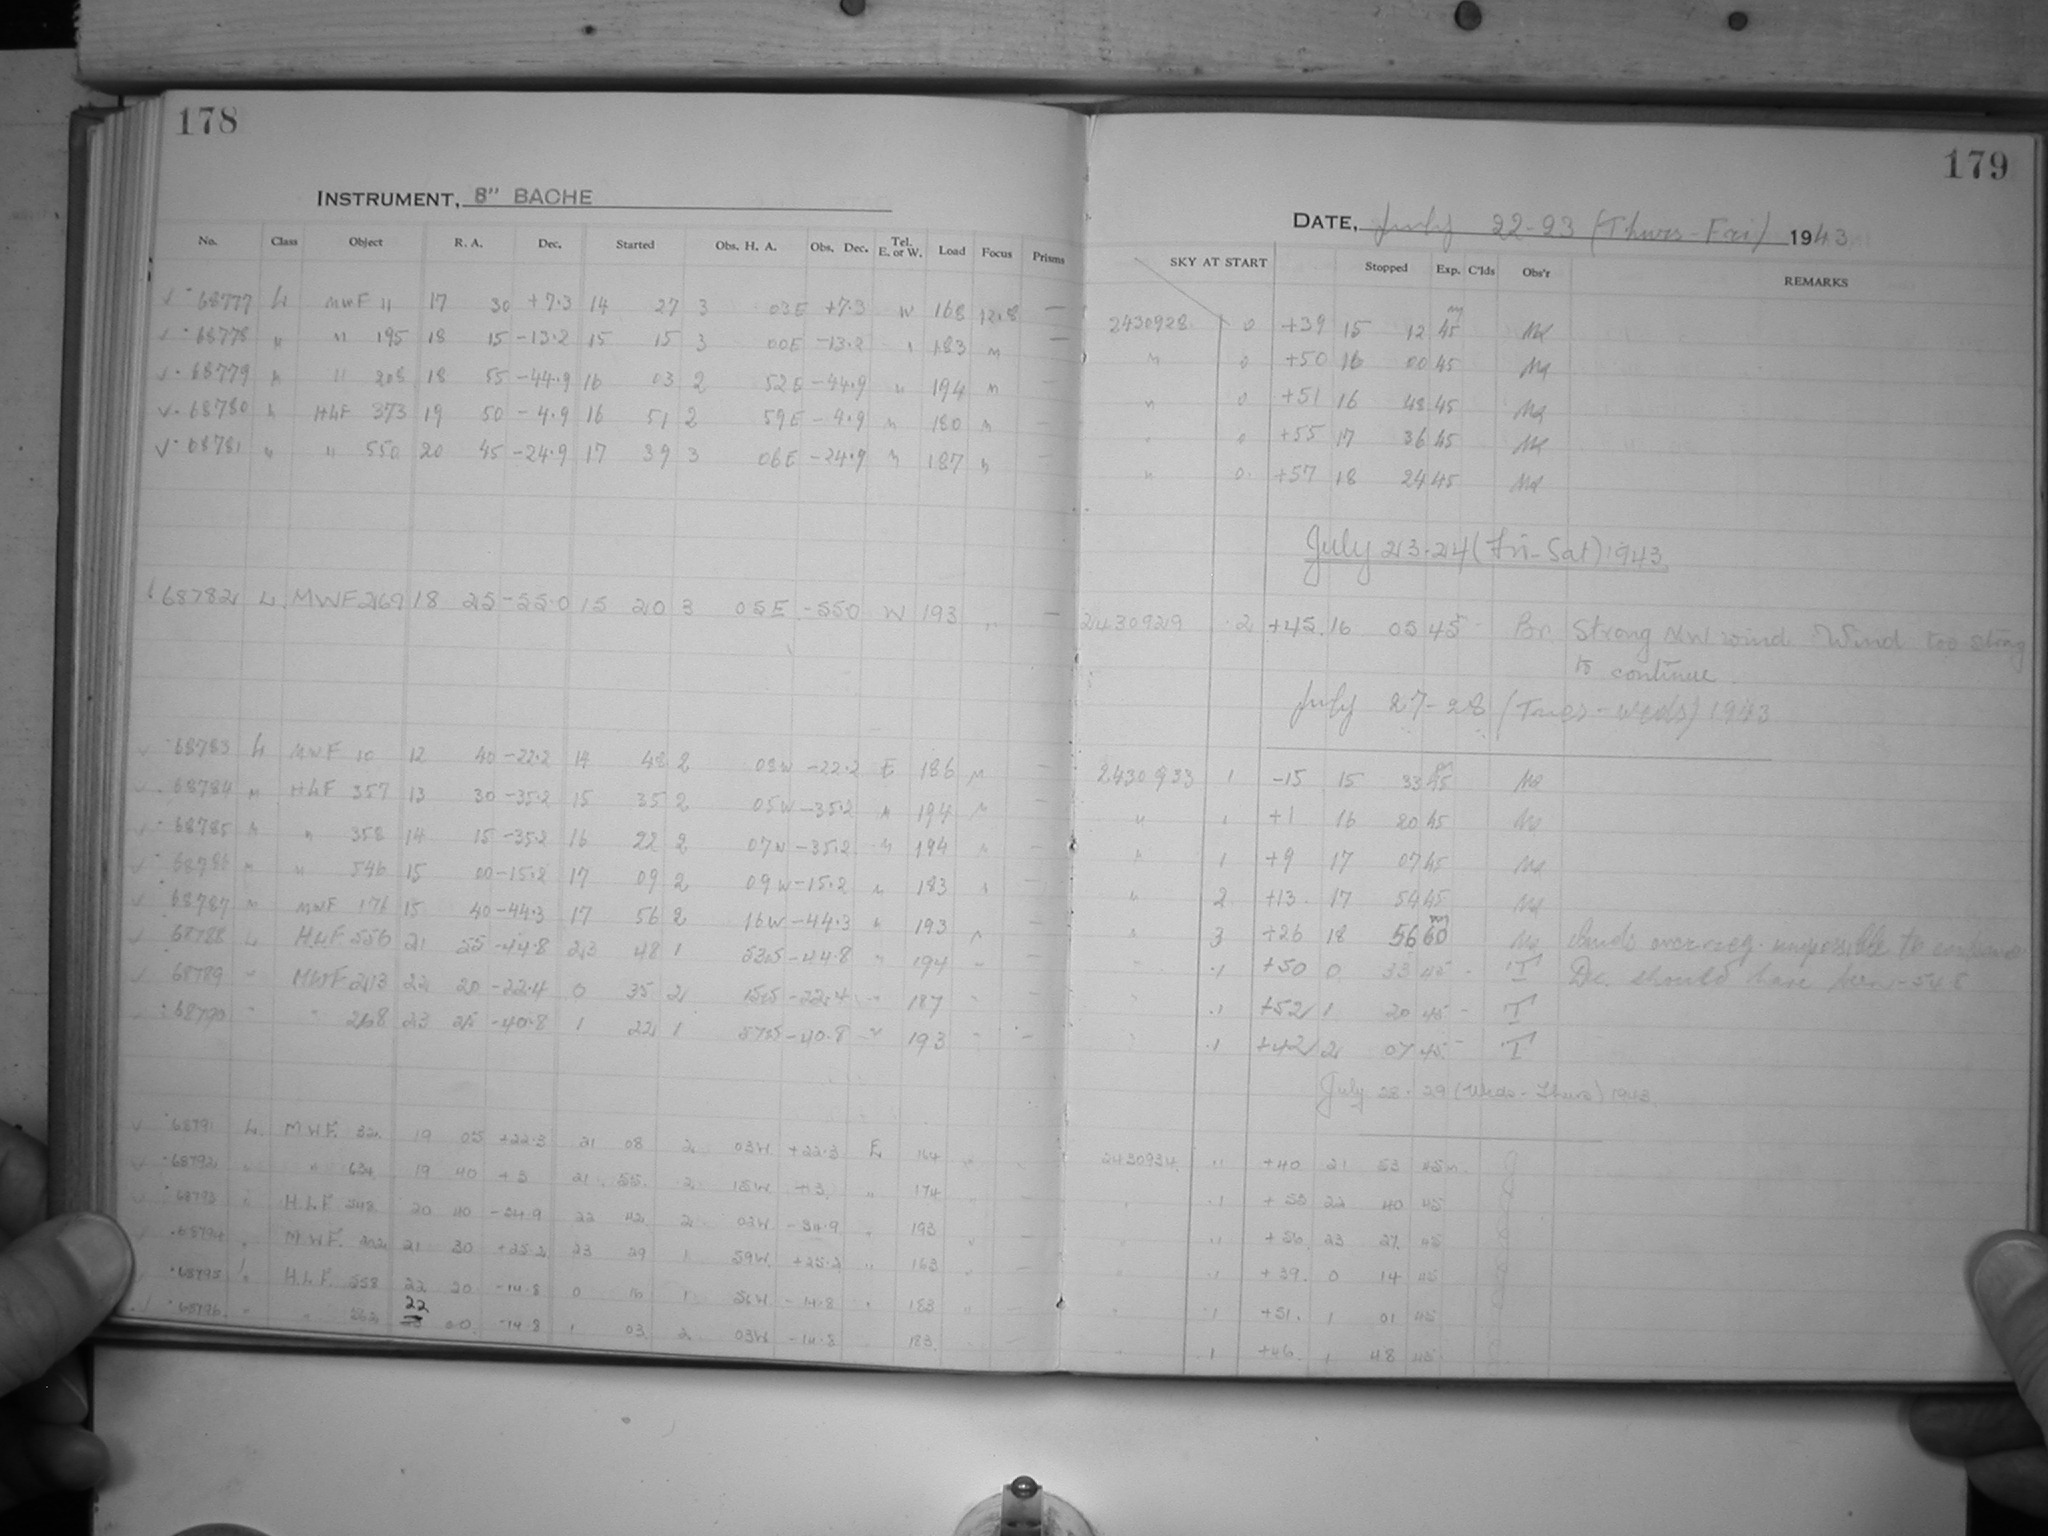 178
INSTRUMENT, 8" BACHE
No. Class Object R. A. Dec. Started Obs. H. A. Obs. Dec. Tel. E. or W. Load Focus Prisms
68777 L MWF 11 17 30 +7.3 14 27 3 03E +7.3 W 168 12.8 —
68778 " " 195 18 15 -13.2 15 15 3 00E -13.2 " 183 " —
68779 " " 208 18 55 -44.9 16 03 2 52E -44.9 " 194 " —
68780 " HLF 373 19 50 -4.9 16 51 2 59E -4.9 " 180 " —
68781 " " 550 20 45 -24.9 17 39 3 06E -24.9 " 187 "
68782 L. MWF 269 18 25 -55.0 15 20 3 05E -550 W 193 " —
68783 L MWF 10 12 40 -22.2 14 48 2 09W -22.2 E 186 " —
68784 " HLF 357 13 30 -35.2 15 35 2 05W -35.2 " 194 " —
68785 " " 358 14 15 -35.2 16 22 2 07W -35.2 " 194 " —
68786 " " 546 15 00 -15.2 17 09 2 09W -15.2 " 183 " —
68787 " MWF 176 15 40 -44.3 17 56 2 16W -44.3 " 193 "
68788 L H.L.F. 556 21 55 -44.8 23 48 1 53W -44.8 " 194 "
68789 " MWF 213 22 20 -22.4 0 35 2 15W -22.4 " 187 "
68790 " " 268 23 25 -40.8 1 22 1 57W -40.8 " 193 " —
68791 L. M.W.F. 32 19 05 +22.3 21 08 2 03W. +22.3 E 164 "
68792 " " 634 19 40 +3 21 55. 2 15W. +3. " 174 "
68793 " H.L.F. 548 20 40 -34.9 22 42 2 02W. -34.9 " 193 "
68794 " M.W.F. 21 30 +25.2 23 29 1 59W. +25.2 " 163 "
68795 " H.L.F. 558 22 20 -14.8 0 16 1 56W. -14.8 " 183 "
22
68796. " 00 -14.8 1 03. 2 03W -14.8 183.
179
DATE, July 22-23 (Thurs-Fri) 1943
SKY AT START Stopped Exp. C'lds Obs'r REMARKS
2430928 0 +39 15 12 45m Md
" 0 +50 16 00 45 Md
" 0 +51 16 48 45 Md
" 0 +55 17 36 45 Md
" 0 +57 18 24 45 Md
July 23-24 (Fri-Sat) 1943.
2430929 2 +45. 16 05 45 - Br. Strong NW wind. Wind too strong
to continue.
July 27-28 (Tues-Weds) 1943
2430933 1 -15 15 33 45m Md
" 1 +1 16 20 45 Md
" 1 +9 17 07 45 Md
" 2 +13 17 54 45 Md
" 3 +26 18 56 60m Md impossible to
" .1 +50 0 33 45 - T Dec. should have been -54.8
" .1 +52 1 20 45 - T
" .1 +42 2 07 45 - T
July 28-29 (Weds-Thurs) 1943.
2430934. " +40 21 53 45m. J
" .1 +53 22 40 45
" " +56. 23 27. 45
" .1 +39. 0 14 45
" .1 +51. 1 01 45
" 1 +46. 1 48 45